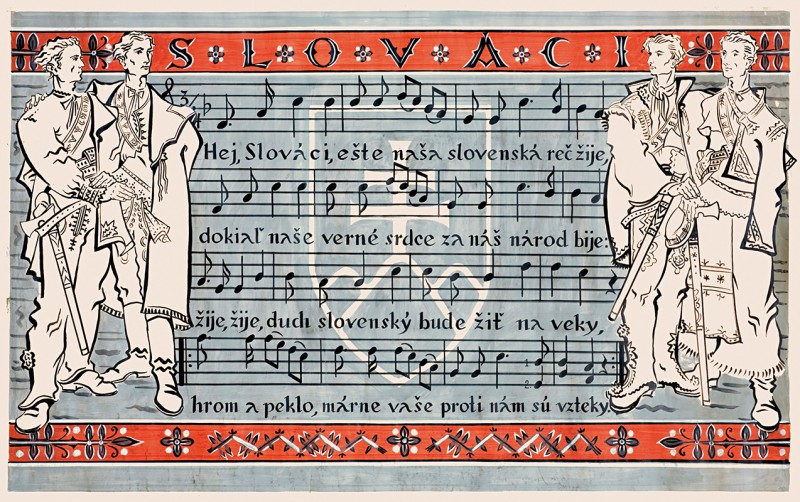 SLOVÁCI
Hej, Slováci, ešte naša slovenská reč žije,
dokiaľ naše verné srdce za náš národ bije:
žije, žije, duch slovenský bude žiť na veky,
hrom a peklo, márne vaše proti nám sú vzteky.